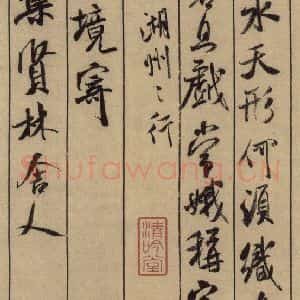 水天形何須織
且戲常娥稱
湖州之行
境寄
集賢林舍人
清吟堂
Shufawang.CN